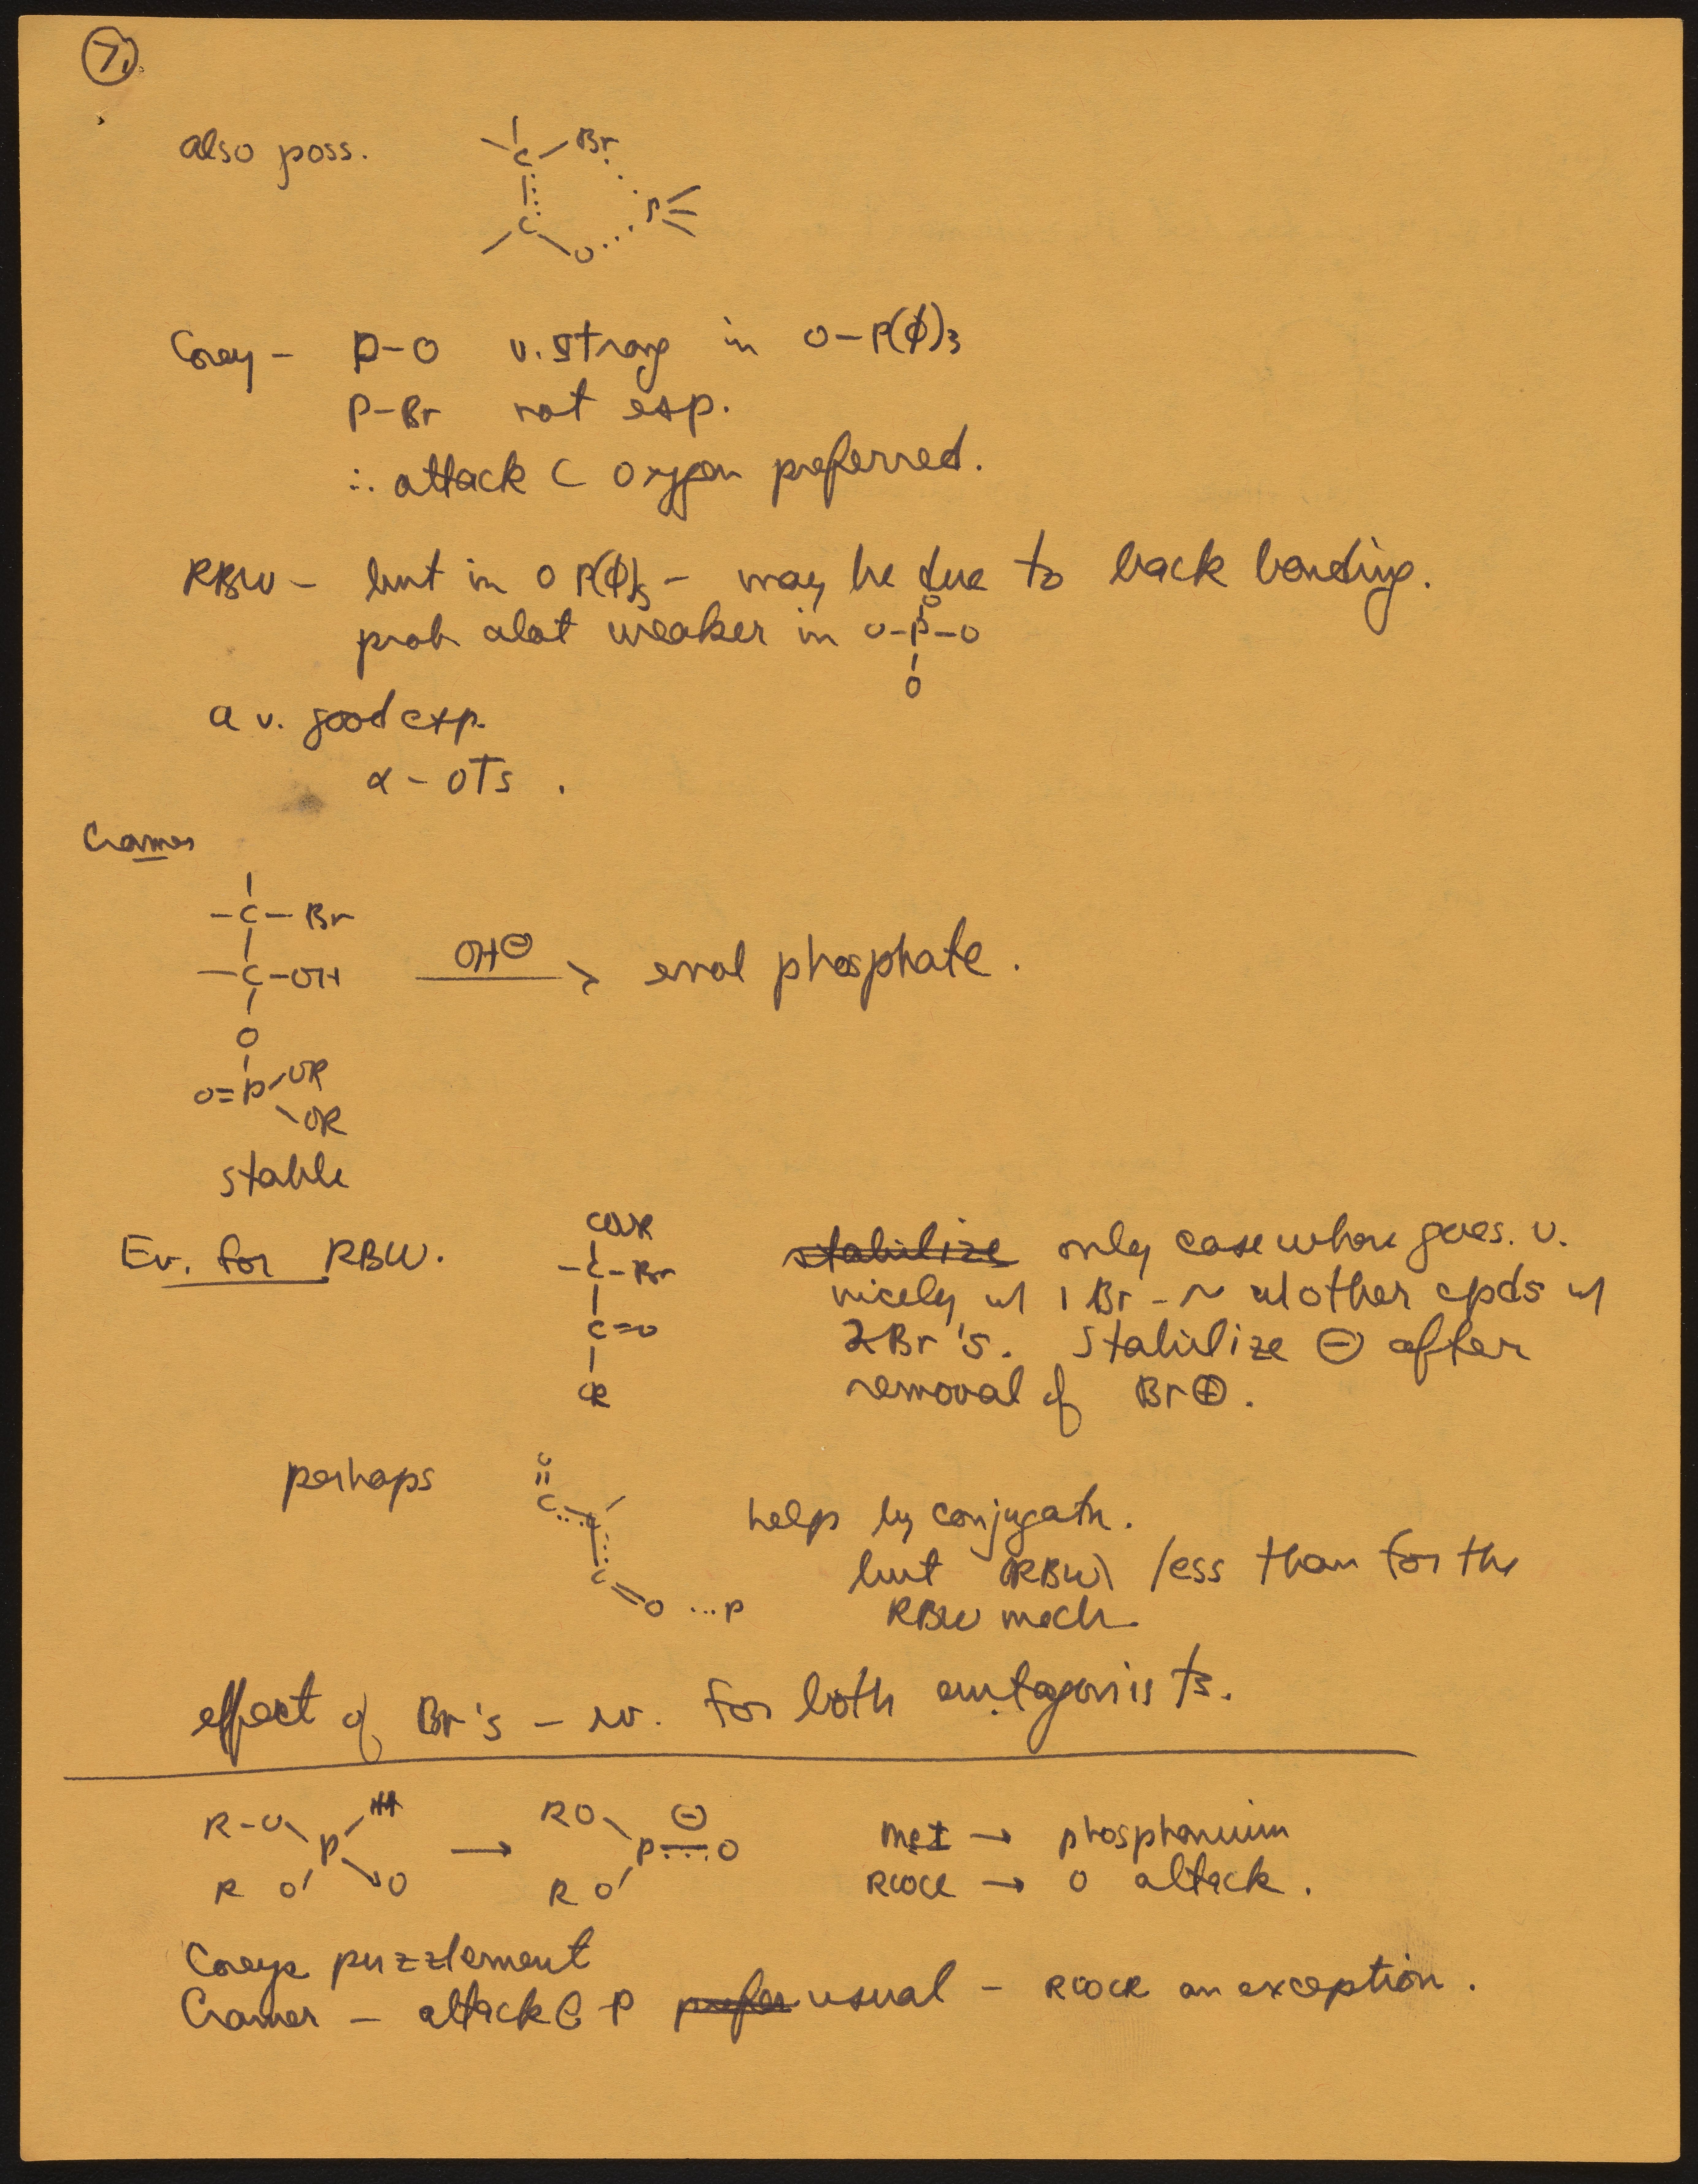 7.
also poss.
C Br
P
C O
Corey – P–O v. strong in O–P(ϕ)3
P–Br not esp.
∴ attack C oxygen preferred.
RBW – but in O P(ϕ)3 – may be due to back bonding.
O
prob alot weaker in O–P–O
O
a v. good exp.
α – OTs .
Cramer
–C–Br
–C–OH OH⊖ → enol phosphate.
O
O=P OR
OR
stable
Ev. for RBW.
COOR
–C–Br
C=O
OR
stabilize only case where goes. v.
nicely w/ 1 Br – ~ w/ other cpds w/
2Br's. Stabilize ⊖ after
removal of Br⊕.
perhaps
O
C C
C
O ...P
help by conjugatn.
but (RBW) less than for the
RBW mech
effect of Br's – w. for both antagonists.
R–O H
P O
R O
→
RO ⊖
P O
R O
MeI → phosphonium
RCOCl → O attack.
Coreys puzzlement
Cramer – attack @ P prefer usual – RCOCR an exception.